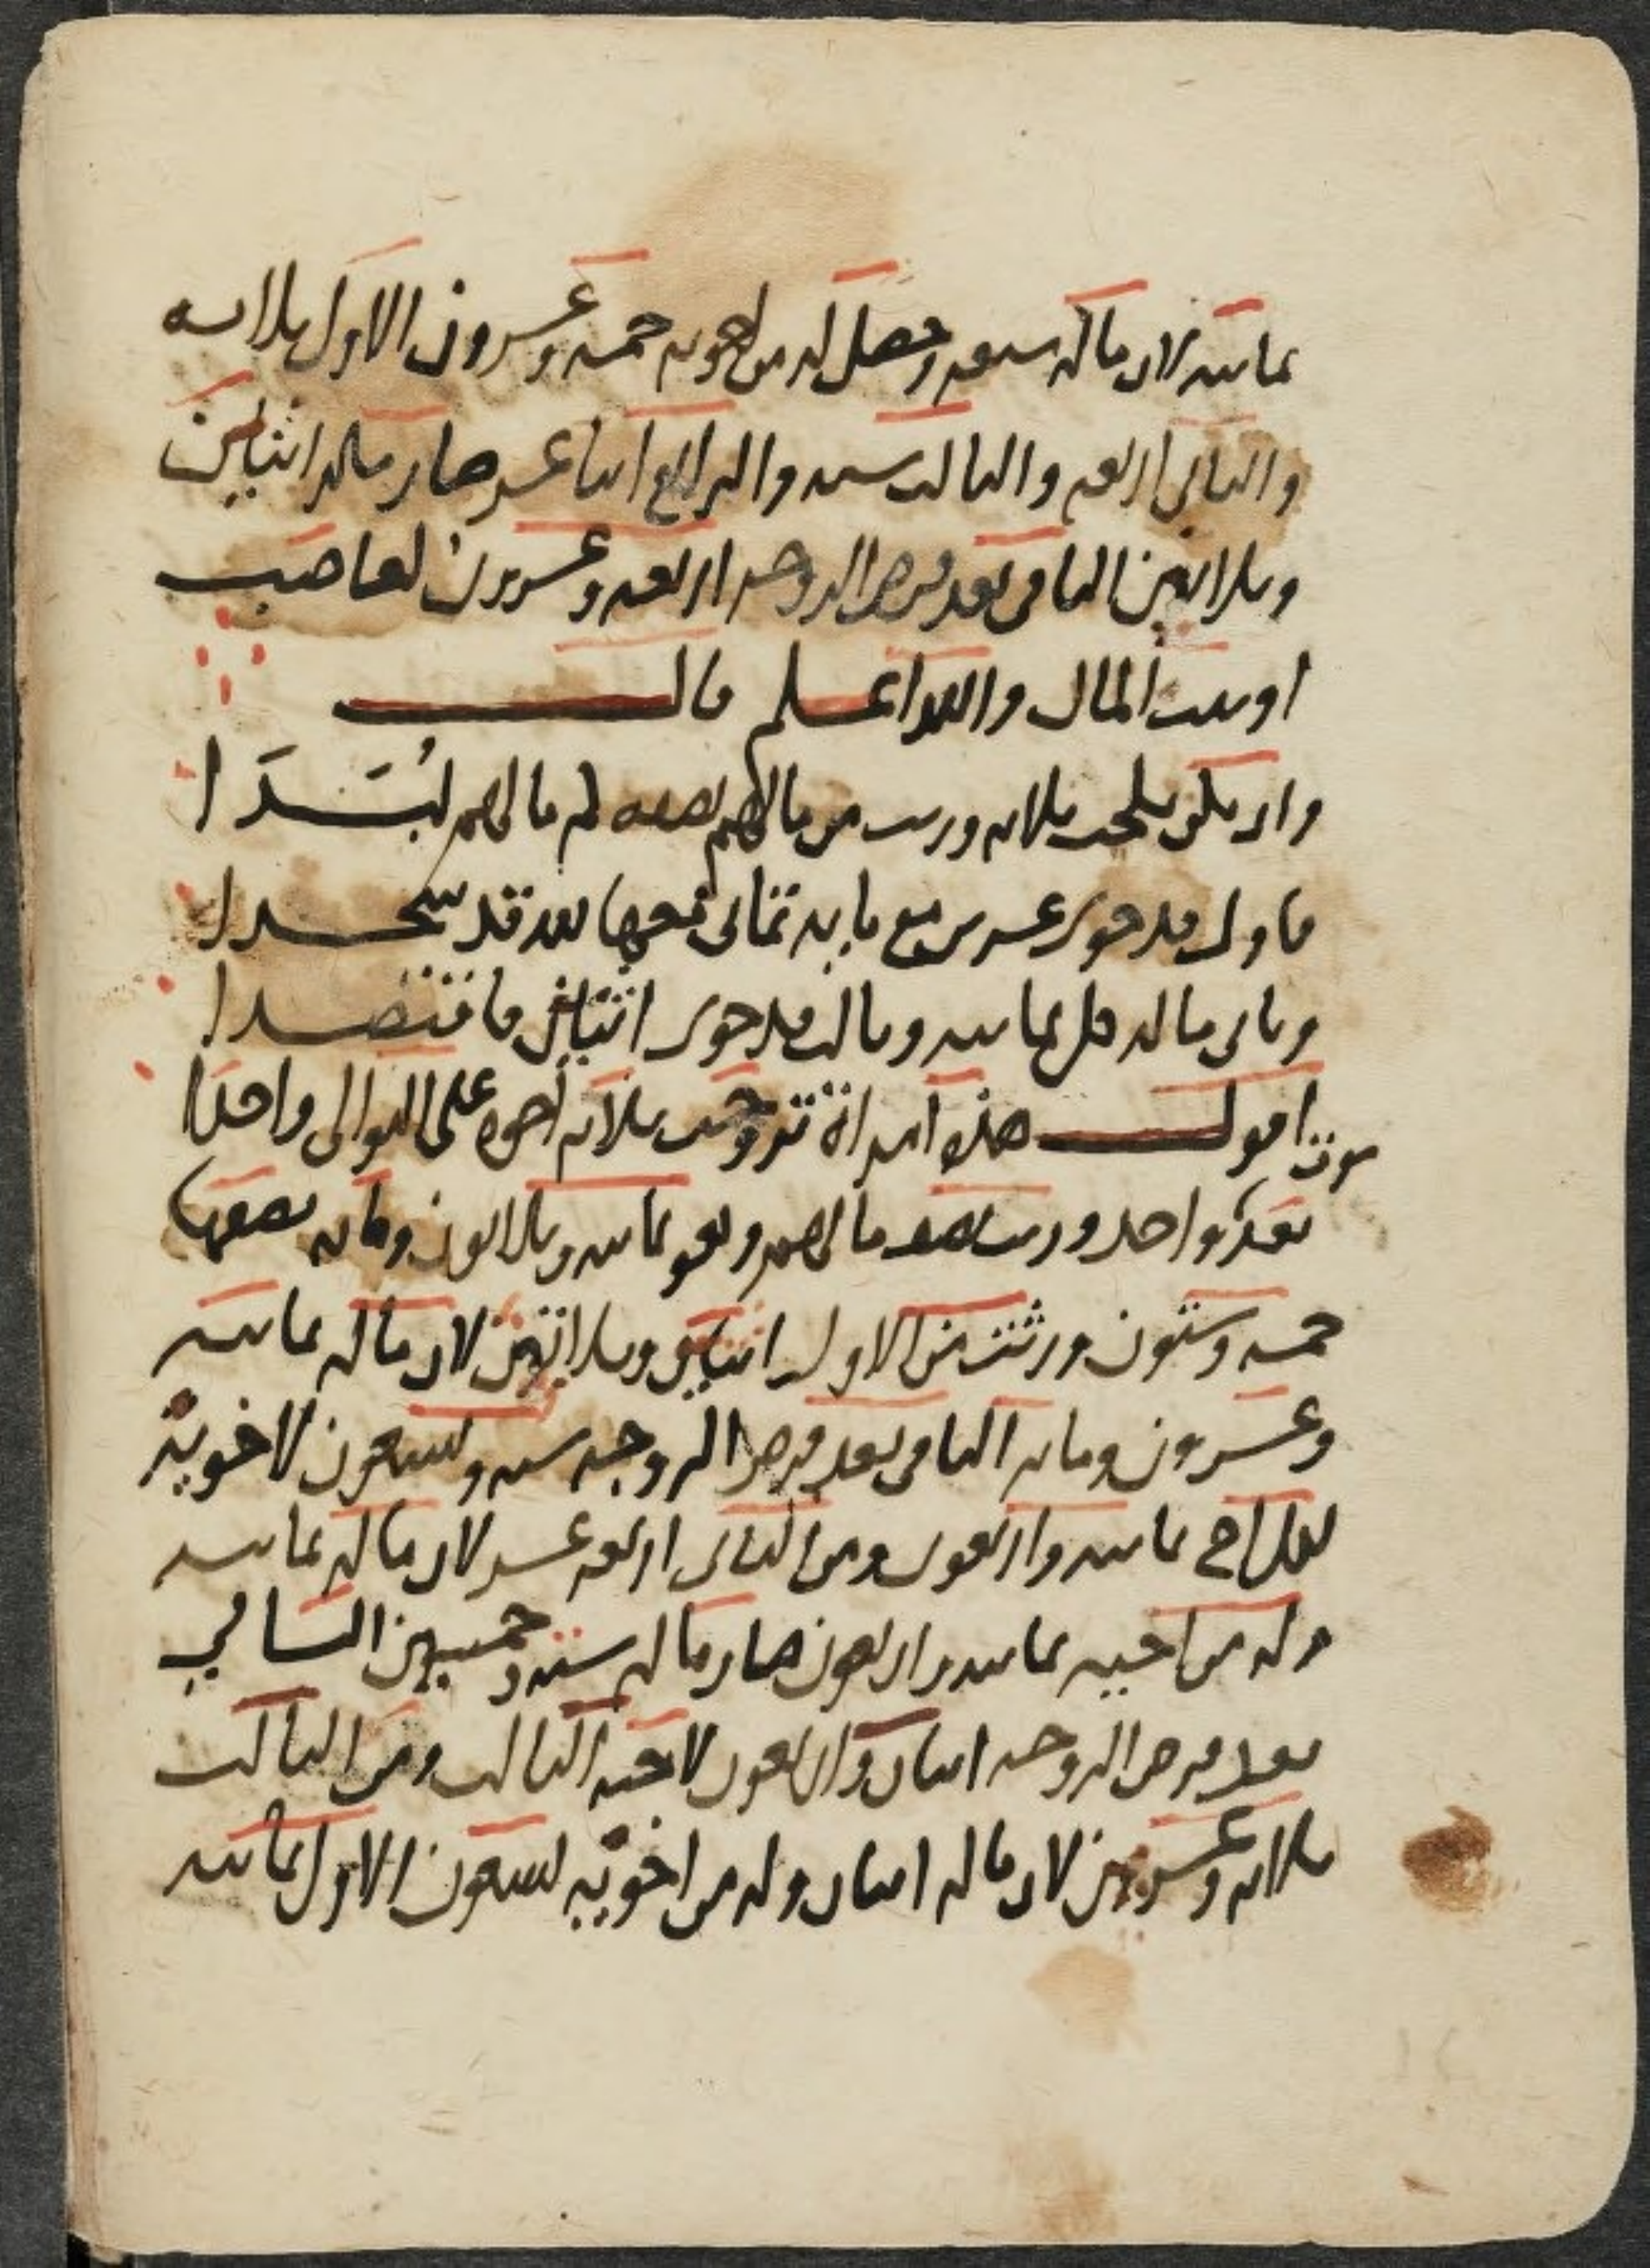 ثمانيه لان ماله سبعه وحصل له من اخوته خمسه وعشرون الاول ثلاثه
والثاني اربعه والثالث سته والرابع اثنا عشر صار ماله اثنين
وثلاثين الباقي بعد فرض الزوجه اربعه وعشرون لعاصب
او بيت المال والله اعلم قال
وان يكن نكحت ثلاثه ورثت من مالهم نصفه لم مالهم لبدا
فاول قد حوى عشرين مع مايه ثماني بعد قد
وثاني ماله قل ثمانيه وثالث قد حوى اثنين فاقتصدا
اقول هذه امراة تزوجت بثلاثه اخوه على التوالي واحدا
موت
بعد واحد ورثت نصف مالهم وهو ثمانيه وثلاثون ومايه نصفها
خمسه وستون ورثت من الاول اثنين وثلاثين لان ماله ثمانيه
وعشرون ومايه الباقي بعد فرض الزوجه سته وتسعون لاخويه
لكل اخ ثمانيه واربعون ومن الثاني اربعه عشر لان ماله ثمانيه
وله من اخيه ثمانيه واربعون صار ماله سته وخمسين الباقي
بعد فرض الزوجه اثنان واربعون لاخيه الثالث ومن الثالث
ثلاثه وعشرين لان ماله اثنان وله من اخويه تسعون الاول ثمانيه